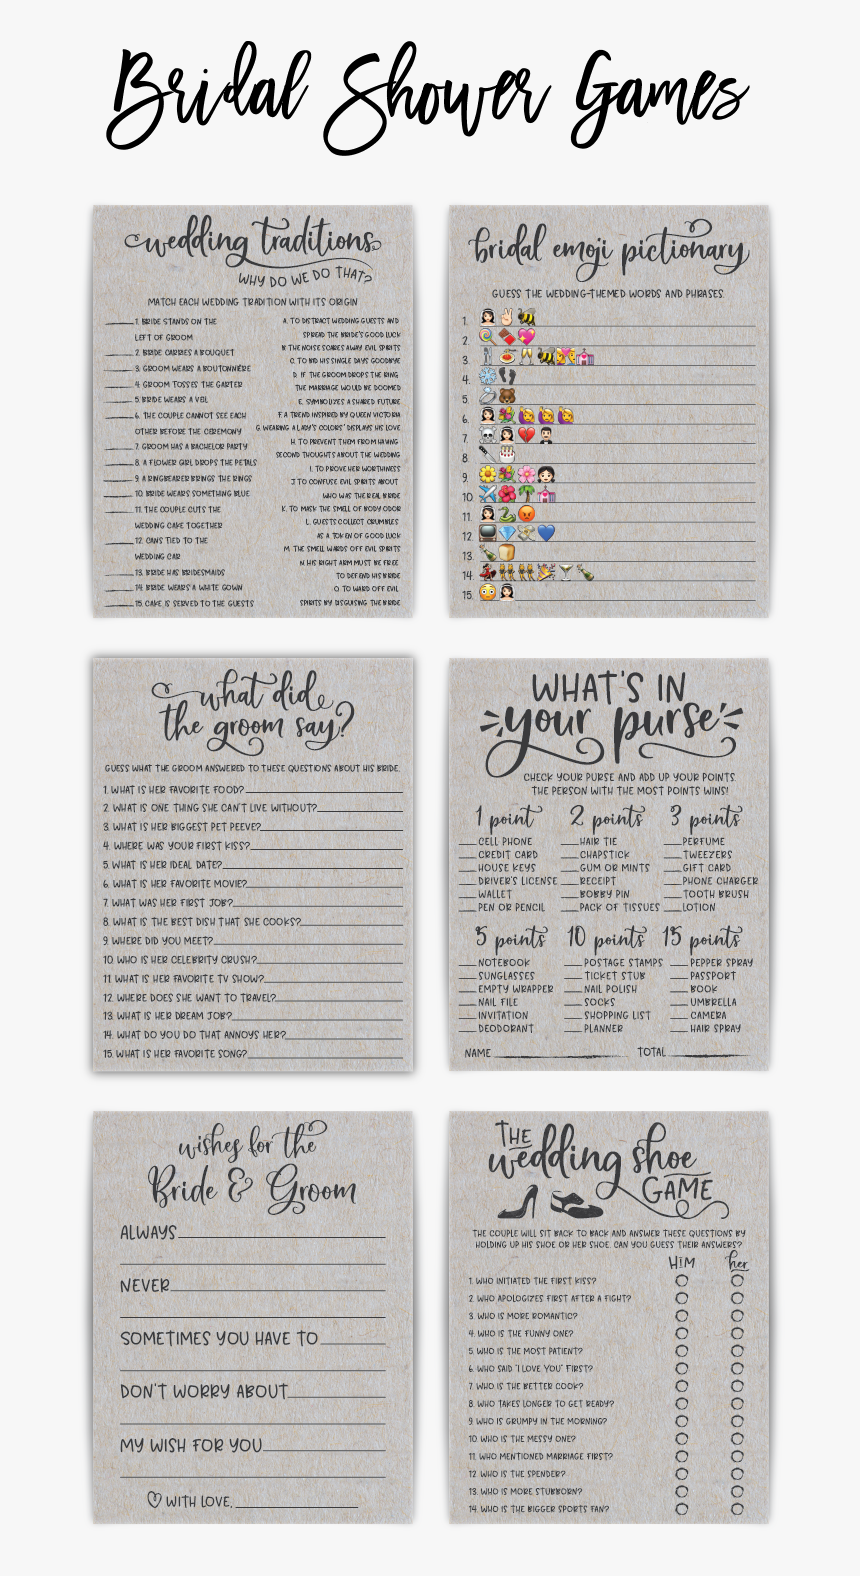 Bridal Shower Games
wedding traditions
WHY DO WE DO THAT?
MATCH EACH WEDDING TRADITION WITH ITS ORIGIN
1. BRIDE STANDS ON THE
LEFT OF GROOM
2. BRIDE CARRIES A BOUQUET
3. GROOM WEARS A BOUTONNIÉRE
4. GROOM TOSSES THE GARTER
5. BRIDE WEARS A VEIL
6. THE COUPLE CANNOT SEE EACH
OTHER BEFORE THE CEREMONY
7. GROOM HAS A BACHELOR PARTY
8. A FLOWER GIRL DROPS THE PETALS
9. A RINGBEARER BRINGS THE RINGS
10. BRIDE WEARS SOMETHING BLUE
11. THE COUPLE CUTS THE
WEDDING CAKE TOGETHER
12. CANS TIED TO THE
WEDDING CAR
13. BRIDE HAS BRIDESMAIDS
14. BRIDE WEARS A WHITE GOWN
15. CAKE IS SERVED TO THE GUESTS
A. TO DISTRACT WEDDING GUESTS AND
SPREAD THE BRIDE'S GOOD LUCK
B. THE NOISE SCARES AWAY EVIL SPIRITS
C. TO BID HIS SINGLE DAYS GOODBYE
D. IF THE GROOM DROPS THE RING
THE MARRIAGE WOULD BE DOOMED
E. SYMBOLIZES A SHARED FUTURE
F. A TREND INSPIRED BY QUEEN VICTORIA
G. WEARING A LADY'S COLORS' DISPLAYS HIS LOVE
H. TO PREVENT THEM FROM HAVING
SECOND THOUGHTS ABOUT THE WEDDING
I. TO PROVE HER WORTHINESS
J. TO CONFUSE EVIL SPIRITS ABOUT
WHO WAS THE REAL BRIDE
K. TO MASK THE SMELL OF BODY ODOR
L. GUESTS COLLECT CRUMBLES
AS A TOKEN OF GOOD LUCK
M. THE SMELL WARDS OFF EVIL SPIRITS
N. HIS RIGHT ARM MUST BE FREE
TO DEFEND HIS BRIDE
O. TO WARD OFF EVIL
SPIRITS BY DISGUISING THE BRIDE
bridal emoji pictionary
GUESS THE WEDDING-THEMED WORDS AND PHRASES.
1.
2.
3.
4.
5.
6.
7.
8.
9.
10.
11.
12.
13.
14.
15.
what did
the groom say?
GUESS WHAT THE GROOM ANSWERED TO THESE QUESTIONS ABOUT HIS BRIDE.
1. WHAT IS HER FAVORITE FOOD?
2. WHAT IS ONE THING SHE CAN'T LIVE WITHOUT?
3. WHAT IS HER BIGGEST PET PEEVE?
4. WHERE WAS YOUR FIRST KISS?
5. WHAT IS HER IDEAL DATE?
6. WHAT IS HER FAVORITE MOVIE?
7. WHAT WAS HER FIRST JOB?
8. WHAT IS THE BEST DISH THAT SHE COOKS?
9. WHERE DID YOU MEET?
10. WHO IS HER CELEBRITY CRUSH?
11. WHAT IS HER FAVORITE TV SHOW?
12. WHERE DOES SHE WANT TO TRAVEL?
13. WHAT IS HER DREAM JOB?
14. WHAT DO YOU DO THAT ANNOYS HER?
15. WHAT IS HER FAVORITE SONG?
WHAT'S IN
your purse
CHECK YOUR PURSE AND ADD UP YOUR POINTS.
THE PERSON WITH THE MOST POINTS WINS!
1 point 2 points 3 points
CELL PHONE HAIR TIE PERFUME
CREDIT CARD CHAPSTICK TWEEZERS
HOUSE KEYS GUM OR MINTS GIFT CARD
DRIVER'S LICENSE RECEIPT PHONE CHARGER
WALLET BOBBY PIN TOOTH BRUSH
PEN OR PENCIL PACK OF TISSUES LOTION
5 points 10 points 15 points
NOTEBOOK POSTAGE STAMPS PEPPER SPRAY
SUNGLASSES TICKET STUB PASSPORT
EMPTY WRAPPER NAIL POLISH BOOK
NAIL FILE SOCKS UMBRELLA
INVITATION SHOPPING LIST CAMERA
DEODORANT PLANNER HAIR SPRAY
NAME TOTAL
wishes for the
Bride & Groom
ALWAYS
NEVER
SOMETIMES YOU HAVE TO
DON'T WORRY ABOUT
MY WISH FOR YOU
WITH LOVE,
THE
wedding shoe
GAME
THE COUPLE WILL SIT BACK TO BACK AND ANSWER THESE QUESTIONS BY
HOLDING UP HIS SHOE OR HER SHOE. CAN YOU GUESS THEIR ANSWERS?
HIM her
1. WHO INITIATED THE FIRST KISS?
2. WHO APOLOGIZES FIRST AFTER A FIGHT?
3. WHO IS MORE ROMANTIC?
4. WHO IS THE FUNNY ONE?
5. WHO IS THE MOST PATIENT?
6. WHO SAID "I LOVE YOU" FIRST?
7. WHO IS THE BETTER COOK?
8. WHO TAKES LONGER TO GET READY?
9. WHO IS GRUMPY IN THE MORNING?
10. WHO IS THE MESSY ONE?
11. WHO MENTIONED MARRIAGE FIRST?
12. WHO IS THE SPENDER?
13. WHO IS MORE STUBBORN?
14. WHO IS THE BIGGER SPORTS FAN?